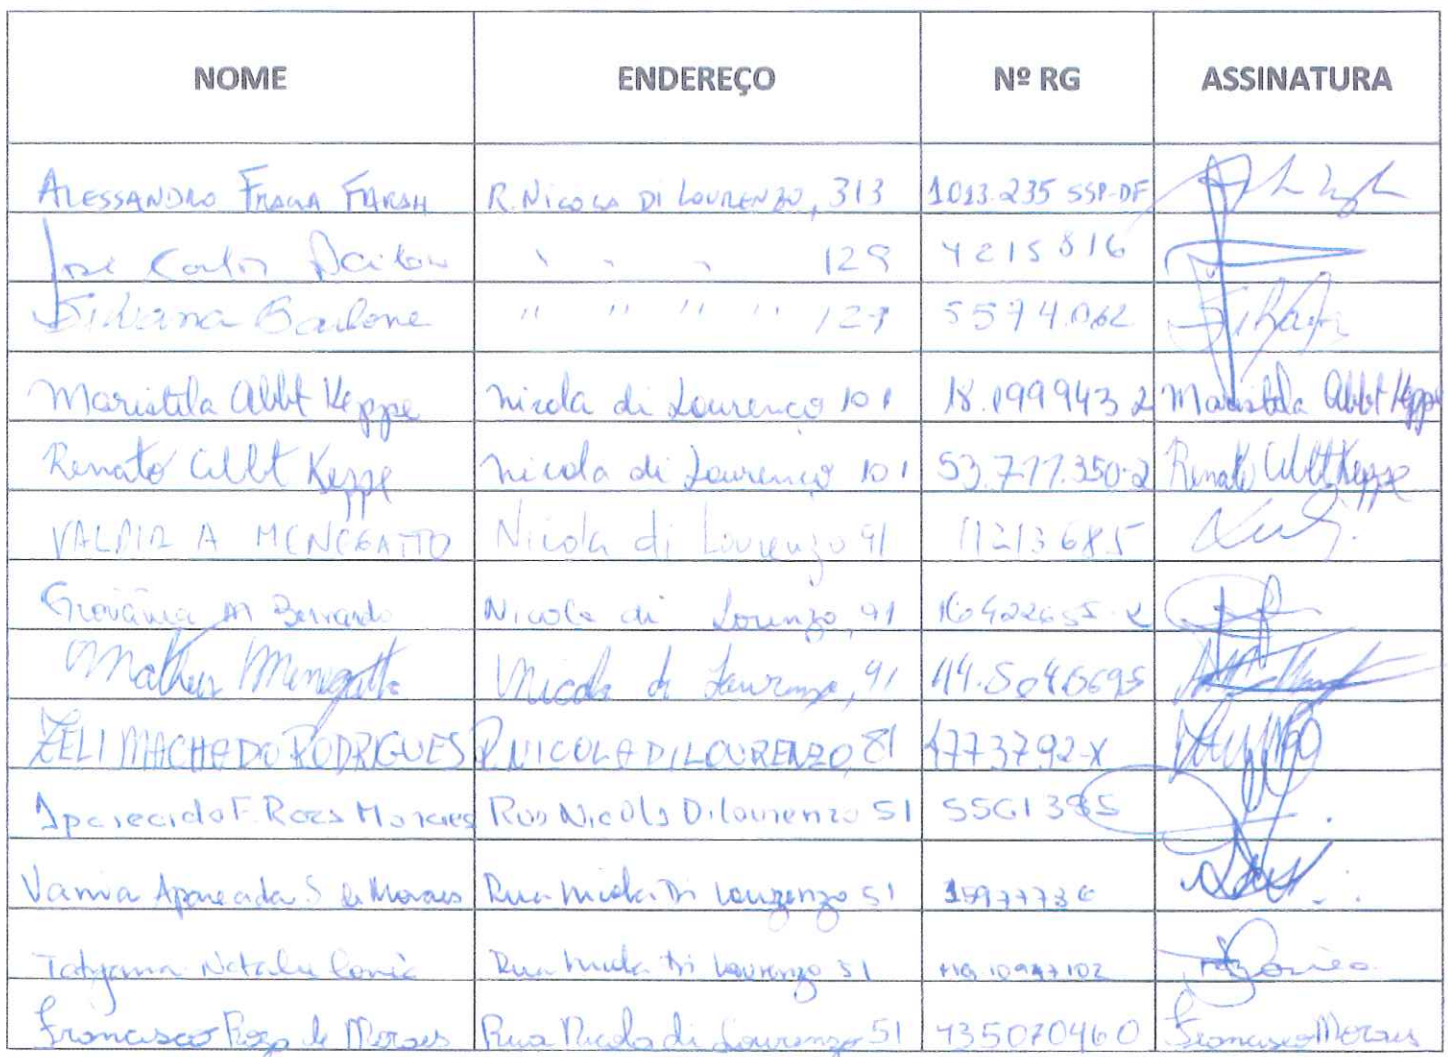 NOME ENDEREÇO Nº RG ASSINATURA
ALESSANDRO FRAGA FARAH R. NICOLA DI LOURENZO, 313 1013.235 SSP-DF
José Carlos 129 4215816
Silvana Barlone " " " " 129 5574.062
Maristela Abbt Keppe Nicola di Lourenço 101 18.199943 2 Maristela Abbt Keppe
Renato Abbt Keppe Nicola di Lourenço 101 53.777.350-2 Renato Abbt Keppe
VALDIR A MENEGATTO Nicola di Lourenzo 91 11213685
Giovânia M Bernardo Nicola di Lourenzo, 91 16422655-2
Matheus Menegatto Nicola di Lourenzo, 91 44.504.6695
ZELI MACHADO RODRIGUES R NICOLA DI LOURENZO, 81 4773792-X
Aparecido F. Rozs Moraes Rua Nicola Di Lourenzo 51 5561395
Vania Aparecida S de Moraes Rua Nicola Di Lourenzo 51 15977736
Tatyana Natalu Rua Nicola Di Lourenzo 51 MG.10947102
Francisco Roza de Moraes Rua Nicola di Lourenzo 51 435070460 Francisco Moraes